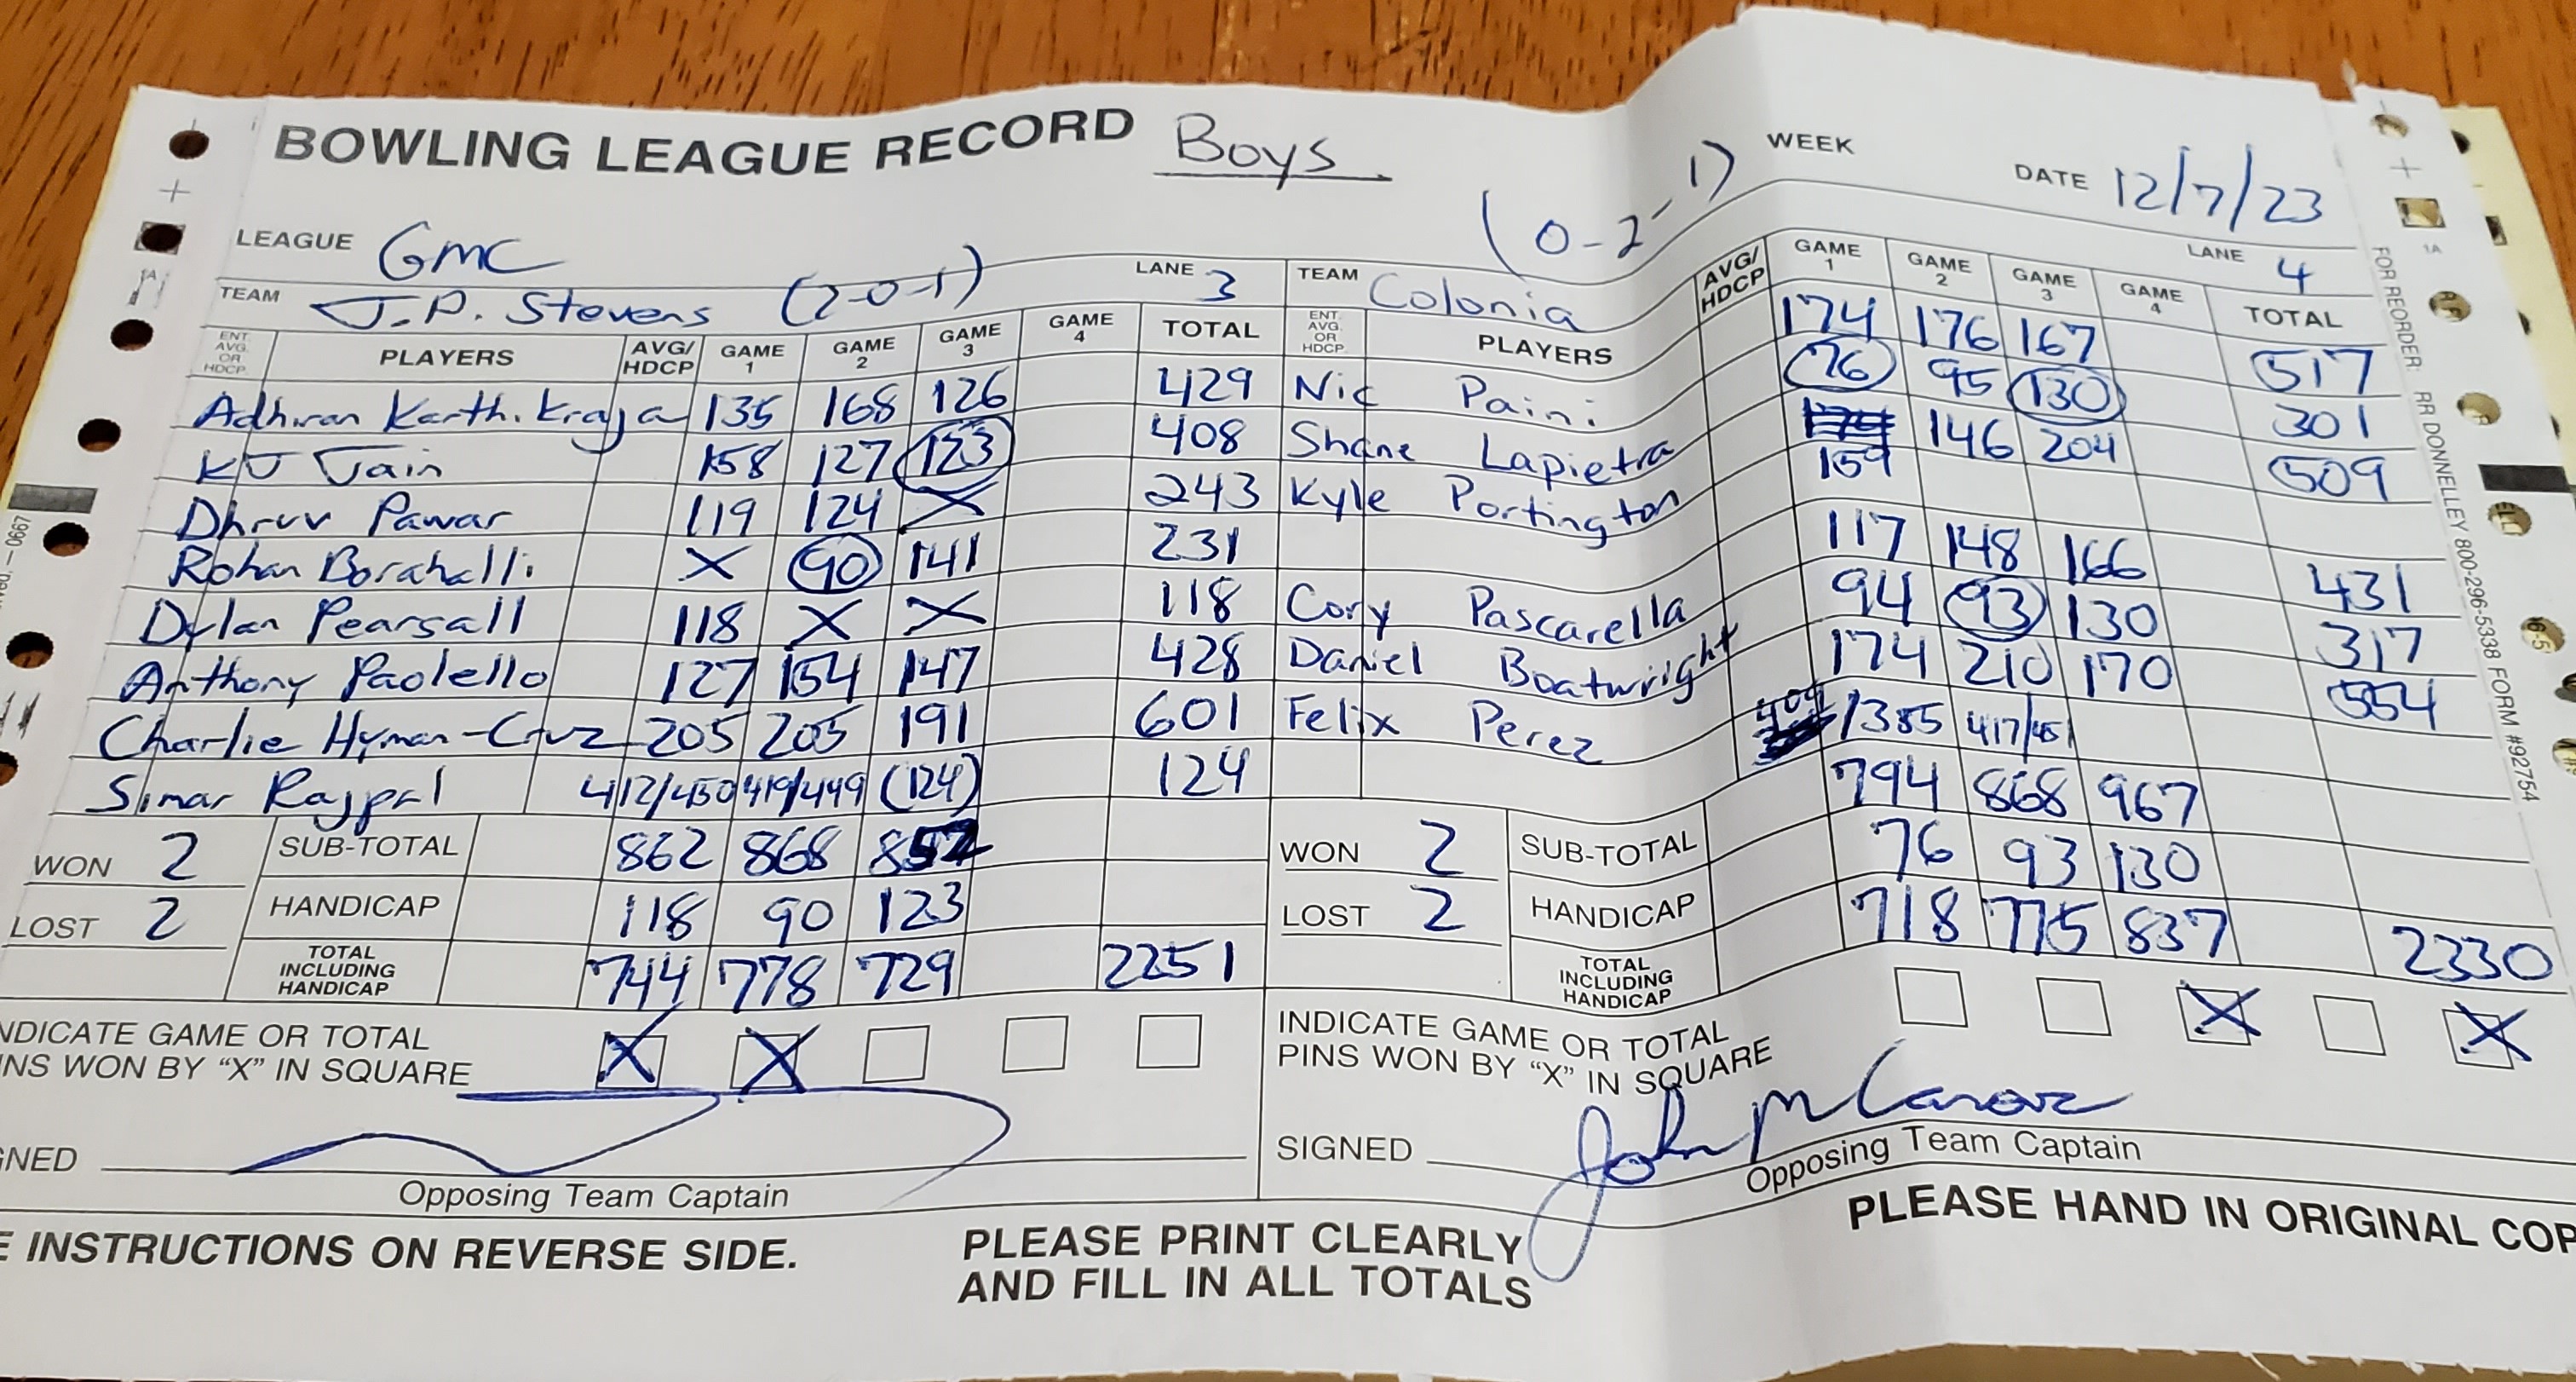 BOWLING LEAGUE RECORD Boys
WEEK
DATE 12/7/23
LEAGUE GMC
(0-2-1)
TEAM J.P. Stevens (2-0-1) LANE 3
TEAM Colonia LANE 4
ENT. AVG. OR HDCP. PLAYERS AVG/HDCP GAME 1 GAME 2 GAME 3 GAME 4 TOTAL
135 168 126 429
KJ Jain 158 127 123 408
Dhruv Pawar 119 124 X 243
Rohan Borahalli X 90 141 231
Dylan Pearsall 118 X X 118
Anthony Paolello 127 154 147 428
Charlie Hyman-Cruz 205 205 191 601
Simar Rajpal 412/450 419/449 (124) 124
WON 2 SUB-TOTAL 862 868 852
LOST 2 HANDICAP 118 90 123
TOTAL INCLUDING HANDICAP 744 778 729 2251
NDICATE GAME OR TOTAL
NS WON BY “X” IN SQUARE X X
GNED
Opposing Team Captain
ENT. AVG. OR HDCP. PLAYERS AVG/HDCP GAME 1 GAME 2 GAME 3 GAME 4 TOTAL
Nic Paini 174 176 167 517
Shane Lapietra 76 95 130 301
Kyle Portington 159 146 204 509
Cory Pascarella 117 148 166 431
Daniel Boatwright 94 93 130 317
Felix Perez 174 210 170 554
409/385 417/451
WON 2 SUB-TOTAL 794 868 967
LOST 2 HANDICAP 76 93 130
TOTAL INCLUDING HANDICAP 718 775 837 2330
INDICATE GAME OR TOTAL
PINS WON BY “X” IN SQUARE X X
SIGNED John
Opposing Team Captain
E INSTRUCTIONS ON REVERSE SIDE.
PLEASE PRINT CLEARLY
AND FILL IN ALL TOTALS
PLEASE HAND IN ORIGINAL COP
FOR REORDER: RR DONNELLEY 800-296-5338 FORM #92754